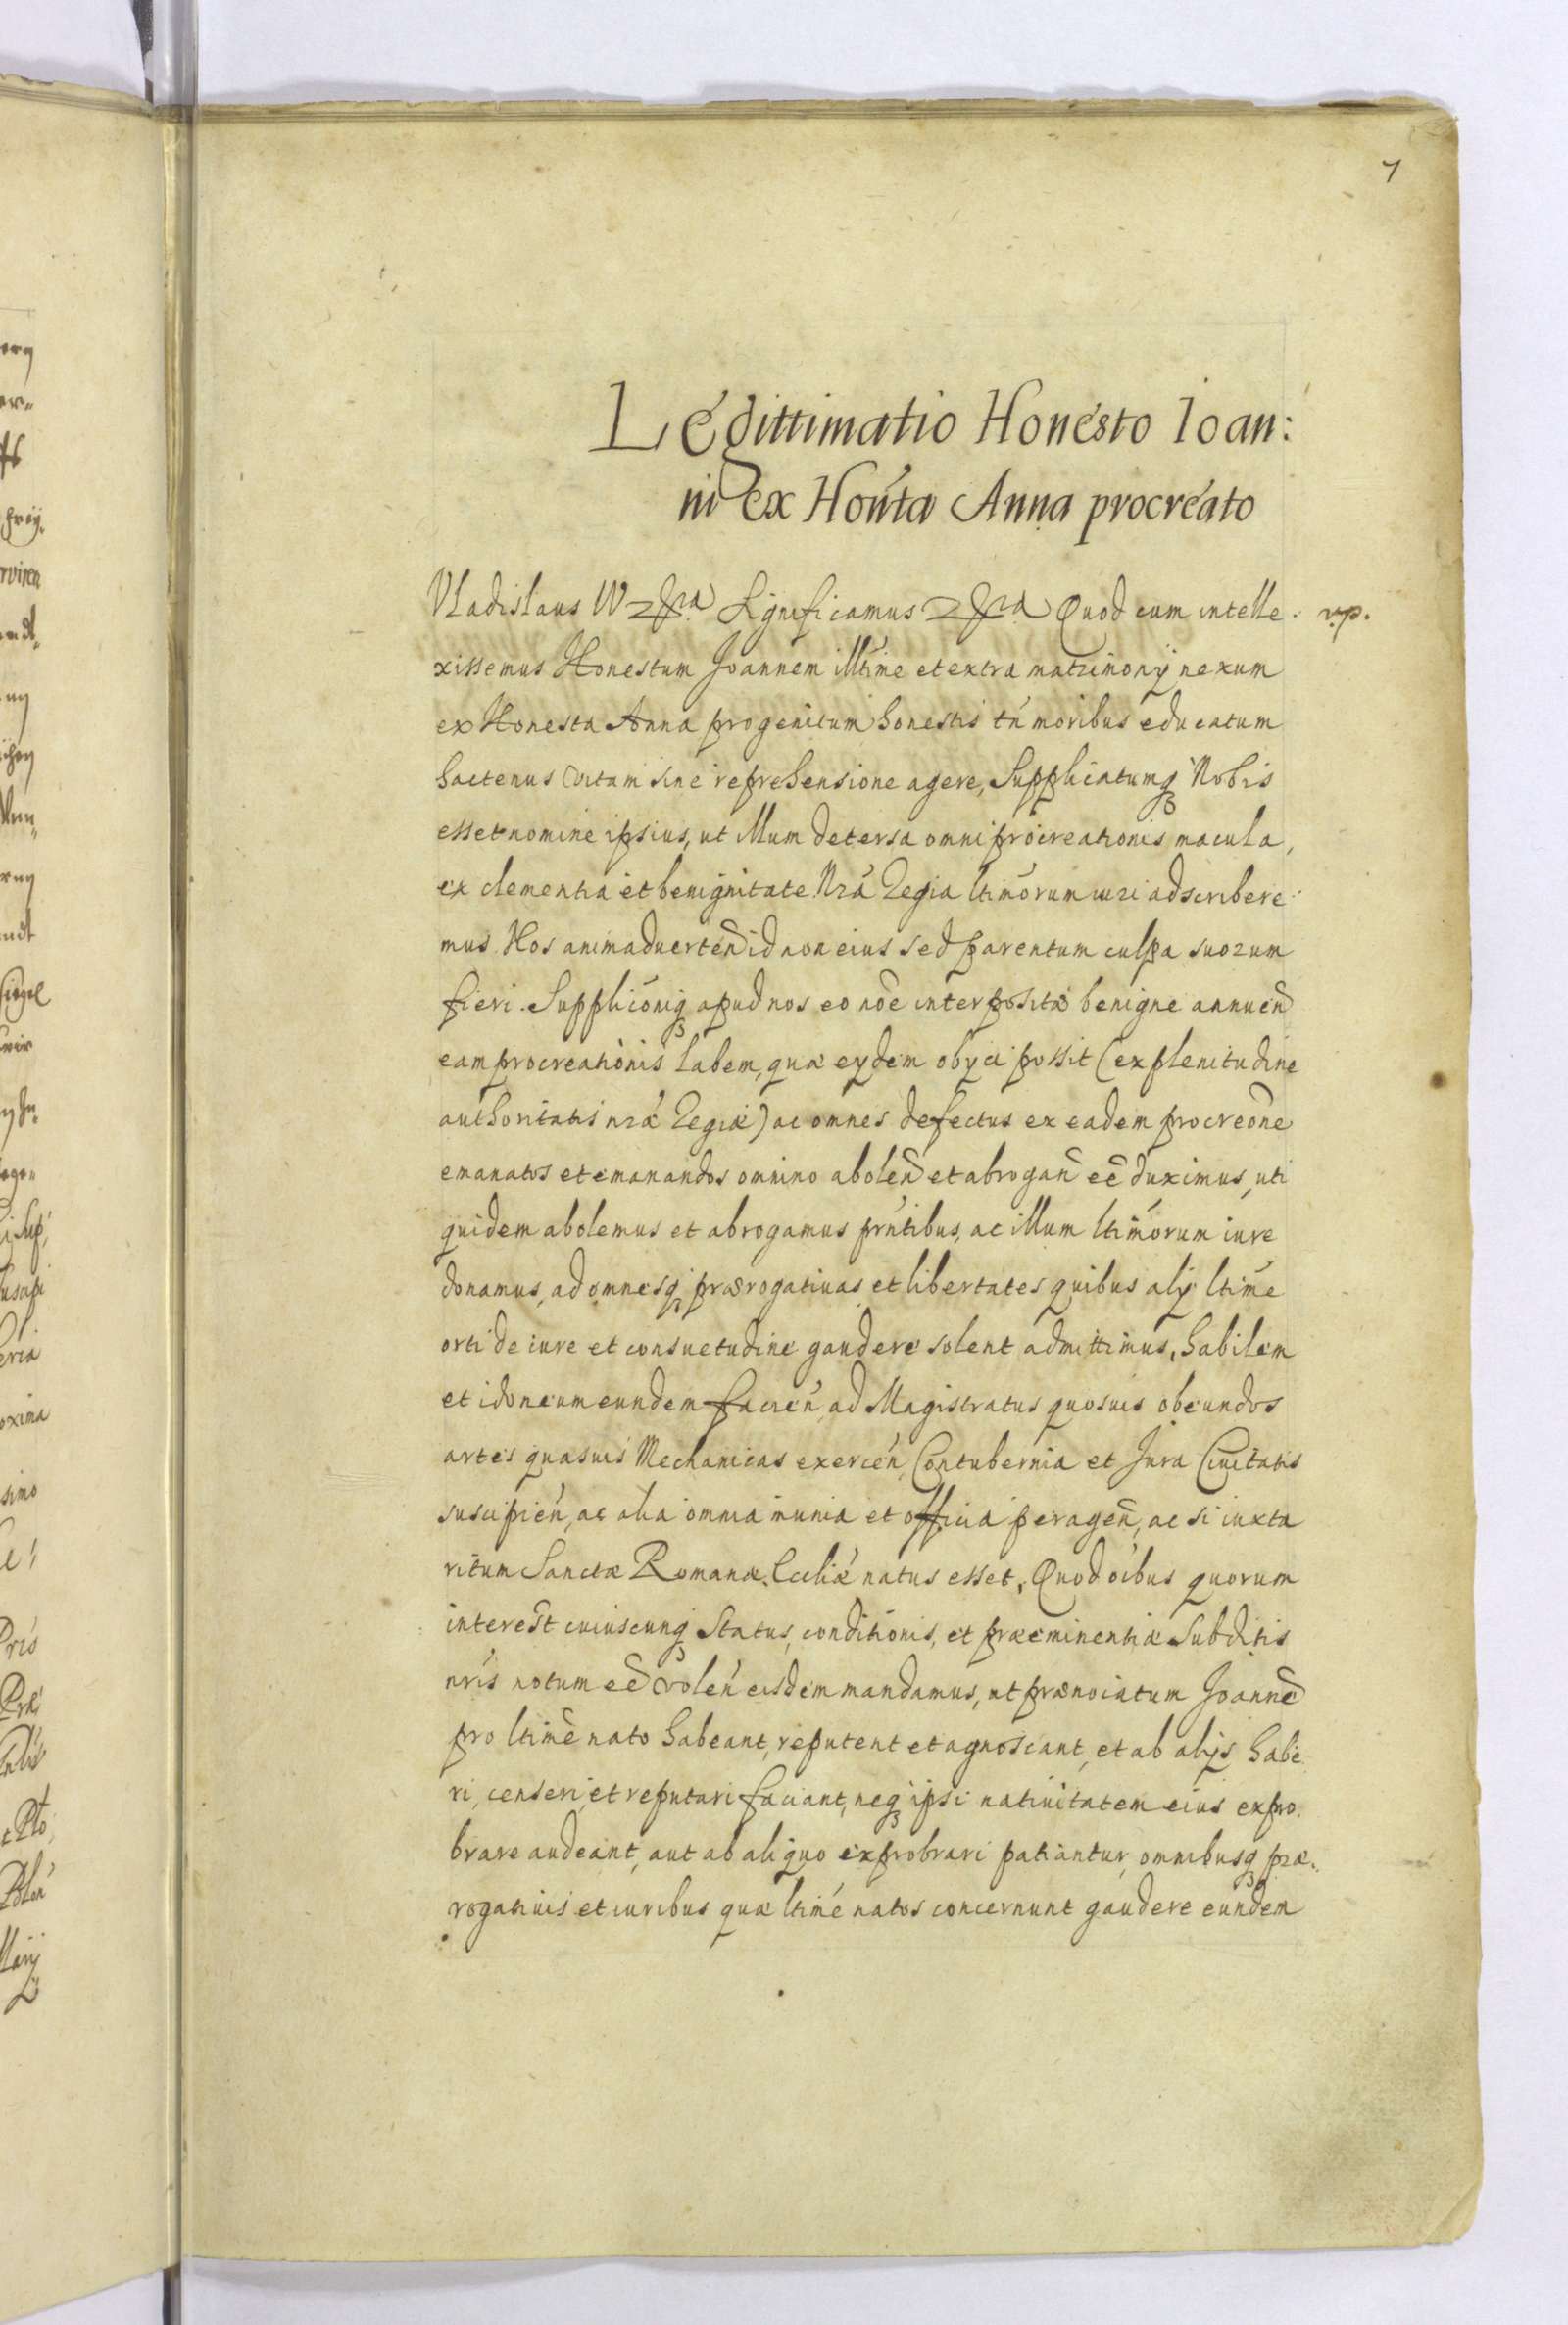 7
Legittimatio Honesto Ioan:
ni ex Hońta Anna procreato
Vladislaus IV Significamus Quod cum intelle. v.p.
xissemus Honestum Joannem illtime et extra matrimonÿ nexum
ex Honesta Anna progenitum honestis tń moribus educatum
hactenus vitam sine reprehensione agere, Supplicatumq Nobis
esset nomine ipsius, ut illum detersa omni procreationis macula,
ex clementia et benignitate Nrá Regia ltimorum iuri adscribere
mus. Nos animaduerteñ id non eius sed parentum culpa suorum
fieri. Supplicóniq apud nos eo nóe interpositæ benigne annueñ
eam procreationis labem, quæ eÿdem obÿci possit (ex plenitudine
authoritatis nræ Regiæ) ac omnes defectus ex eadem procreóne
emanatos et emanandos omnino aboleñ et abrogañ eē duximus, uti
quidem abolemus et abrogamus prńtibus, ac illum ltimórum iure
donamus, ad omnesq prærogatiuas et libertates quibus alÿ ltimé
orti de iure et consuetudine gaudere solent admittimus, habilem
et idoneum eundem facień ad Magistratus quosuis obeundos
artes quasuis Mechanicas exerceń, Contubernia et Jura Ciuitatis
suscipień, ac alia omnia munia et officia perageñ, ac si iuxta
ritum Sanctæ Romanæ Ecclíæ natus esset, Quod oíbus quorum
interest cuiuscunq Status, conditionis, et præeminentiæ Subditis
nrís notum eē voleń eisdem mandamus, ut prænoíatum Joannē
pro ltimē nato habeant, reputent et agnoscant, et ab alÿs habe
ri, censeri, et reputari faciant, neq ipsi natiuitatem eius expro.
brare audeant, aut ab aliquo exprobrari patiantur, omnibusq præ.
rogatiuis et iuribus quæ ltimé natos concernunt gaudere eundem